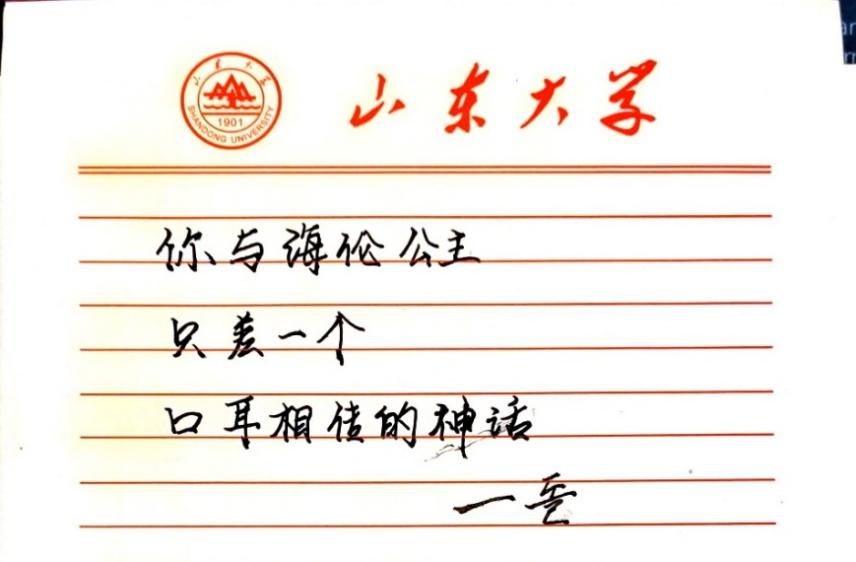 山东大学
SHANDONG UNIVERSITY
1901
山东大学
你与海伦公主
只差一个
口耳相传的神话